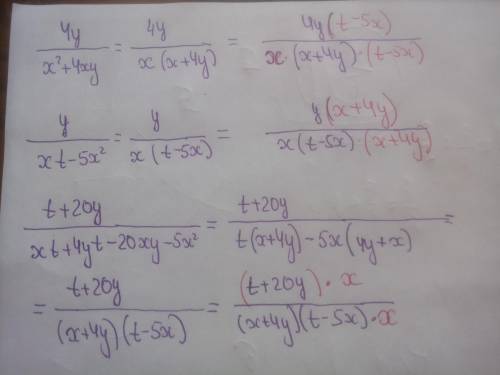 4y/(x²+4xy) = 4y/(x(x+4y)) = 4y(t-5x)/(x·(x+4y)·(t-5x))
y/(xt-5x²) = y/(x(t-5x)) = y(x+4y)/(x(t-5x)·(x+4y))
(t+20y)/(xt+4yt-20xy-5x²) = (t+20y)/(t(x+4y)-5x(4y+x)) =
= (t+20y)/((x+4y)(t-5x)) = (t+20y)·x/((x+4y)(t-5x)·x)